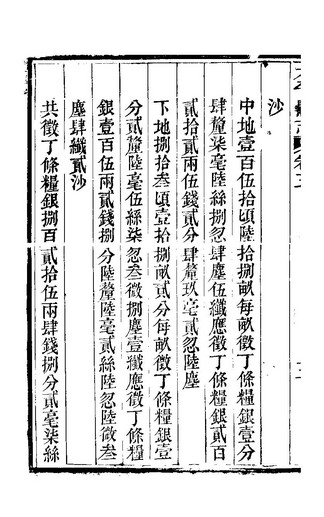 沙
中地壹百伍拾頃陸拾捌畝每畝徵丁條糧銀壹分
肆釐柒毫陸絲捌忽肆塵伍纖應徵丁條糧銀貳百
貳拾貳兩伍錢貳分肆釐玖毫貳忽陸塵
下地捌拾叁頃壹拾捌畝貳分每畝徵丁條糧銀壹
分貳釐陸毫伍絲柒忽叁微捌塵壹纖應徵丁條糧
銀壹百伍兩貳錢捌分陸釐陸毫貳絲陸忽陸微叁
塵肆纖貳沙
共徵丁條糧銀捌百貳拾伍兩肆錢捌分貳毫柒絲